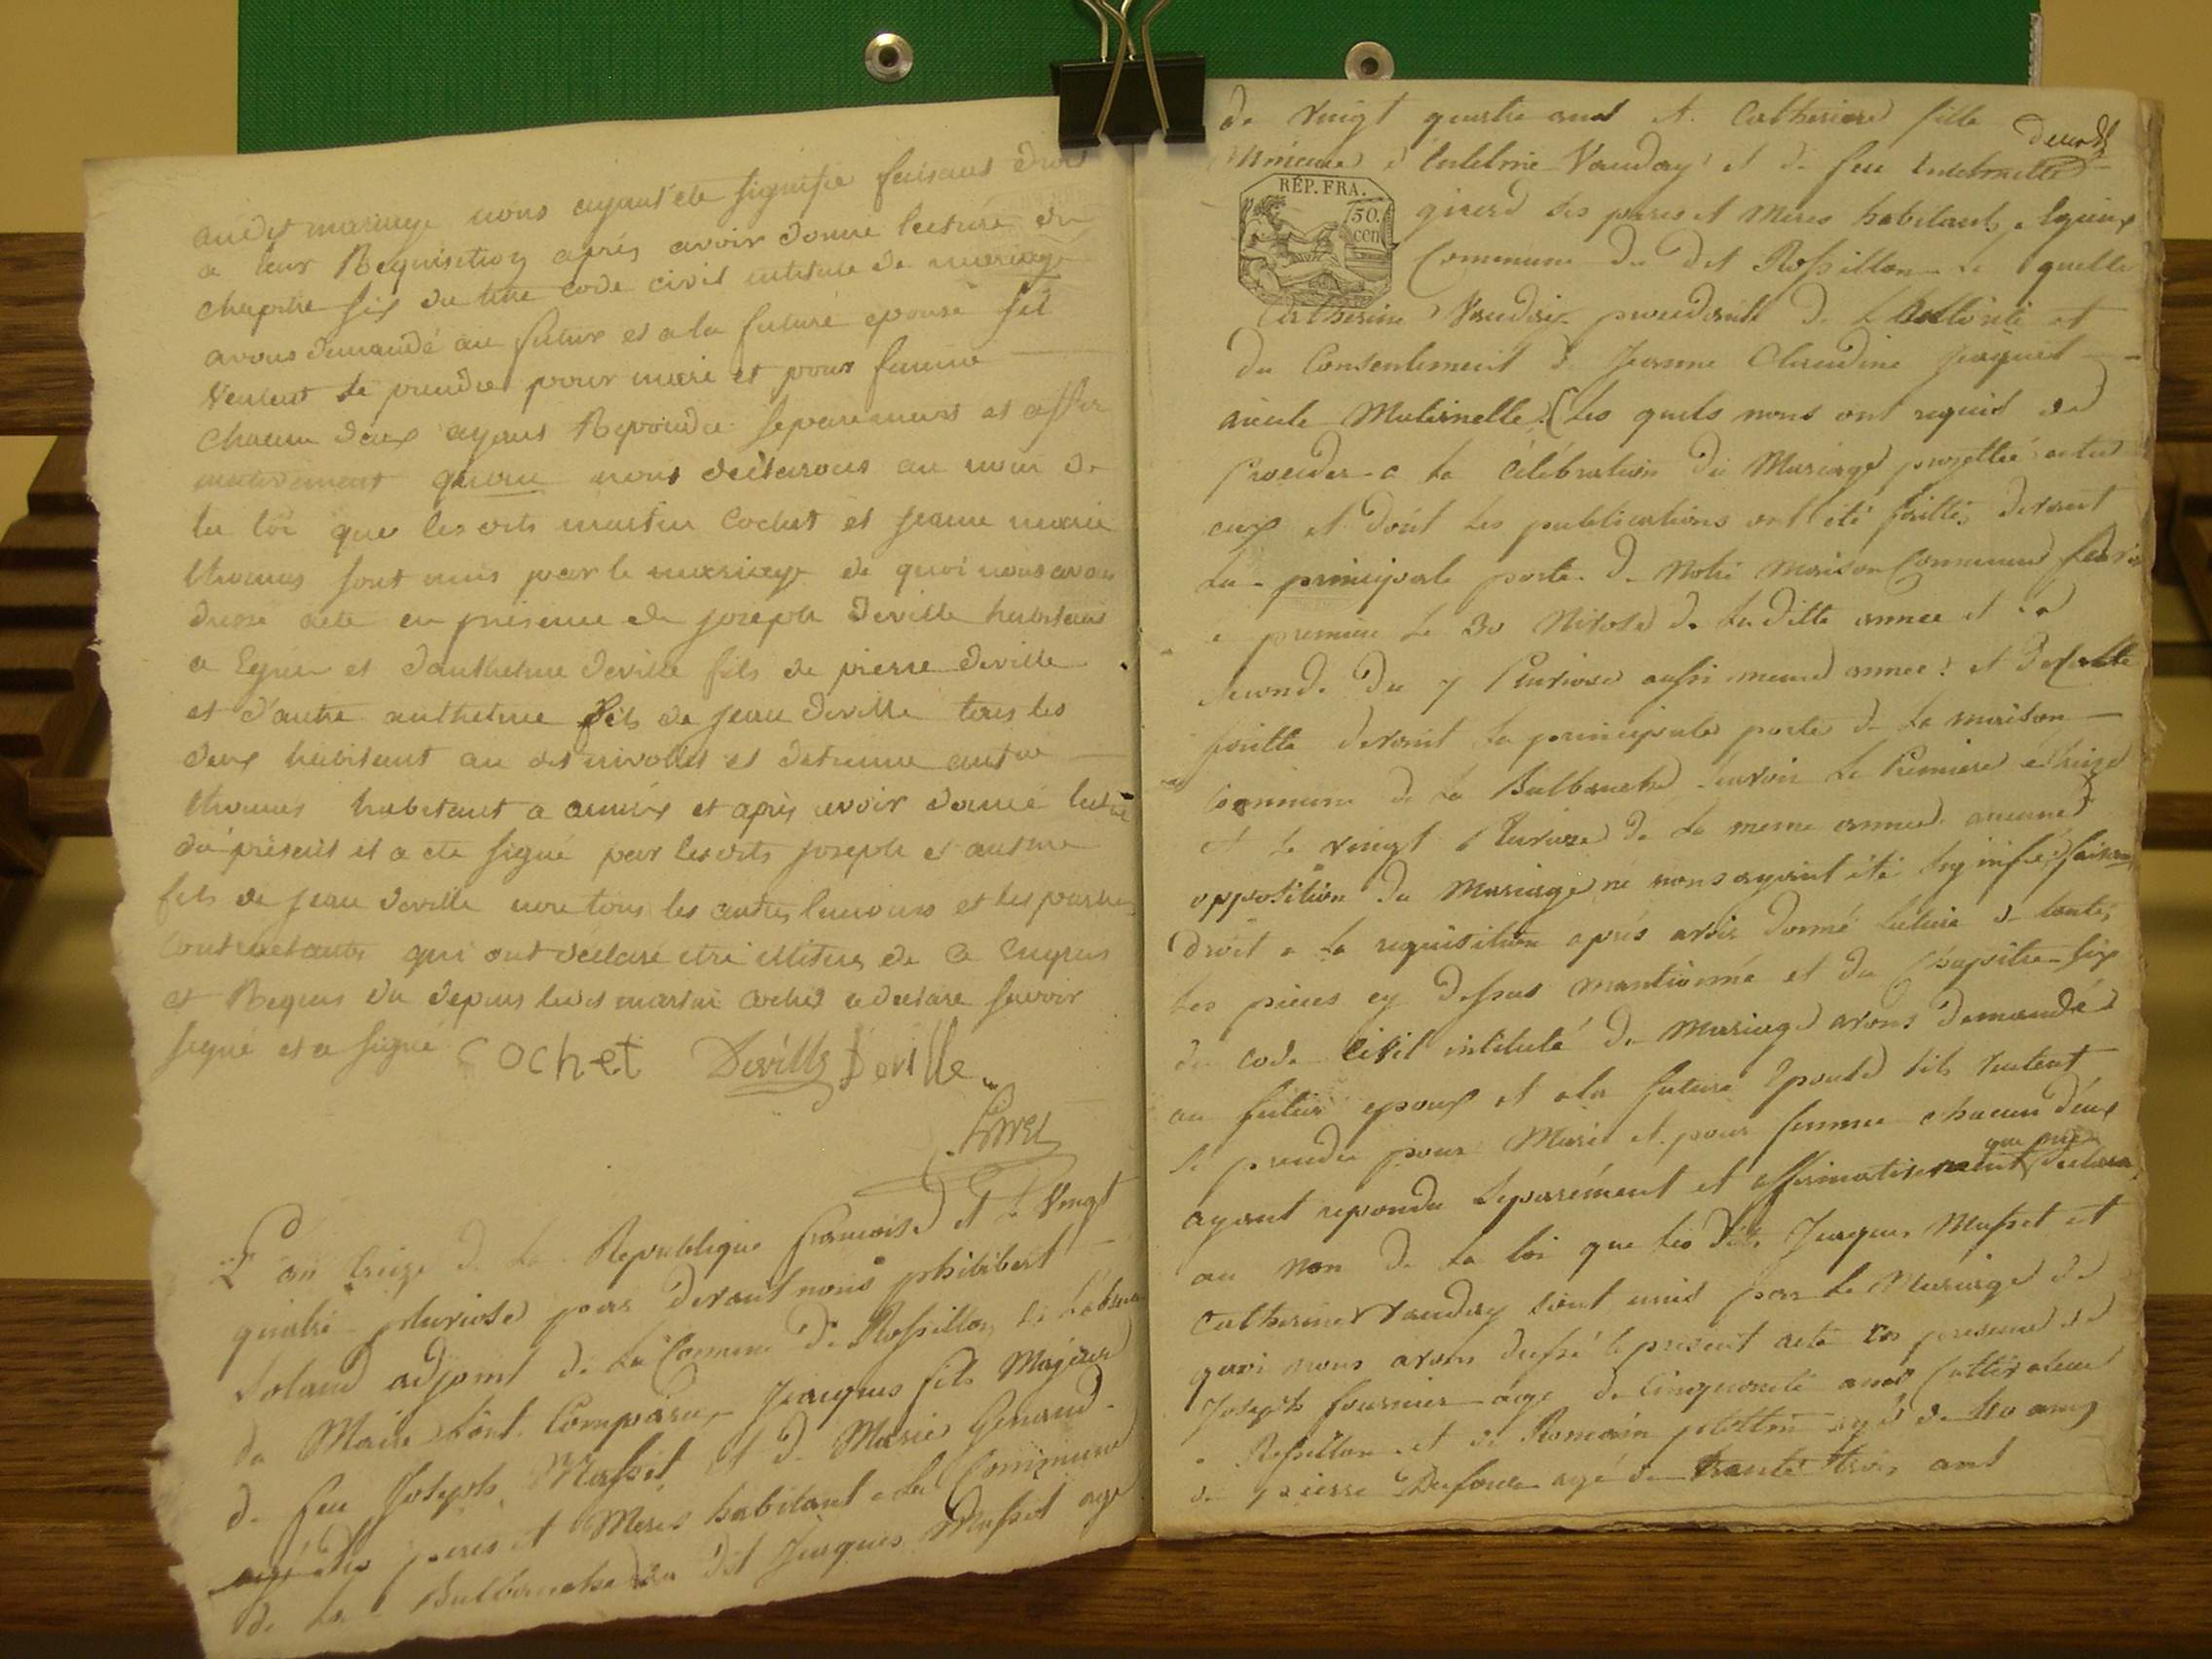 audit mariage nous ayant été signifié faisant droit
a leur Requisition après avoir donné lecture du
chapitre six du titre code civil intitulé de mariage
avons demandé au futur et a la future epouse sil
veulent se prendre pour mari et pour femme
chacun deux ayant Repondu separemment et affir
mativement quoui nous déclarons au nom de
la loi que les dits martin Cochet et jeanne marie
thomas sont unis par le mariage de quoi nous avons
dressé acte en présence de joseph deville habitant
a Egieu et d'anthelme deville fils de pierre deville
et d'autre anthelme fils de jean deville tous les
deux habitant au dit nivollet et detienne
thomas habitant a et après avoir donné lecture
du présent il a été signé par lesdits joseph et
fils de jean deville non tous les autres temoins et les parties
Contractantes qui ont déclaré etre illiteres de ce enquis
et Requis du depuis ledit martin cochet a declaré savoir
signé et a signé Cochet Deville Deville
L'an treize de la Republique francoise et le Vingt
quatre pluviose par devant nous philibert
adjoint de la Commune de Rossillon
du Maire sont Comparu Jacques fils Majeur
de feu Joseph Masset et de Marie
ses peres et Meres habitant a la Commune
de la Balbanche le dit Jacques Masset agé
de vingt quatre ans et Catherine fille
Mineure d'entelme Vauday et de feu
RÉP. FRA.
50. cen
girerd ses peres et Meres habitants a Egieux
Commune du dit Rossillon la quelle
Catherine Vauday procedante de l'authorité et
du Consentement de Jeanne Claudine
aieule Maternelle. Les quels nous ont requis de
Proceder a la Célébration du Mariage projetté entre
eux et dont les publications ont été faittes devant
la principale porte de Notre Maison Commune
la premiere le 30 Nivose de la ditte annee et la
seconde du 7 Pluviose aussi meme annee: et
faitte devant la principale porte de la maison
Commune de la Balbanche savoir le Premiere
et le vingt Pluviose de la meme annee aucune
opposition du Mariage ne nous ayant été signifié faisant
droit a la requisition après avoir donné lecture de toutes
les pieces cy dessus mantionné et du Chapitre six
du code Civil intitulé du Mariage avons demandé
au futur epoux et a la future Epouse sils veulent
se prendre pour Mari et pour femme chacun d'eux
ayant repondu separément et affirmativement que oui declare
au Nom de la loi que les dits Jacques Masset et
Catherine Vauday sont unis par le Mariage de
quoi nous avons dressé le present acte en presence de
Joseph fournier agé de Cinquante ans Cultivateur
a Rossillon et de Romain agé de 40 ans
de pierre Dufour agé de trante trois ans